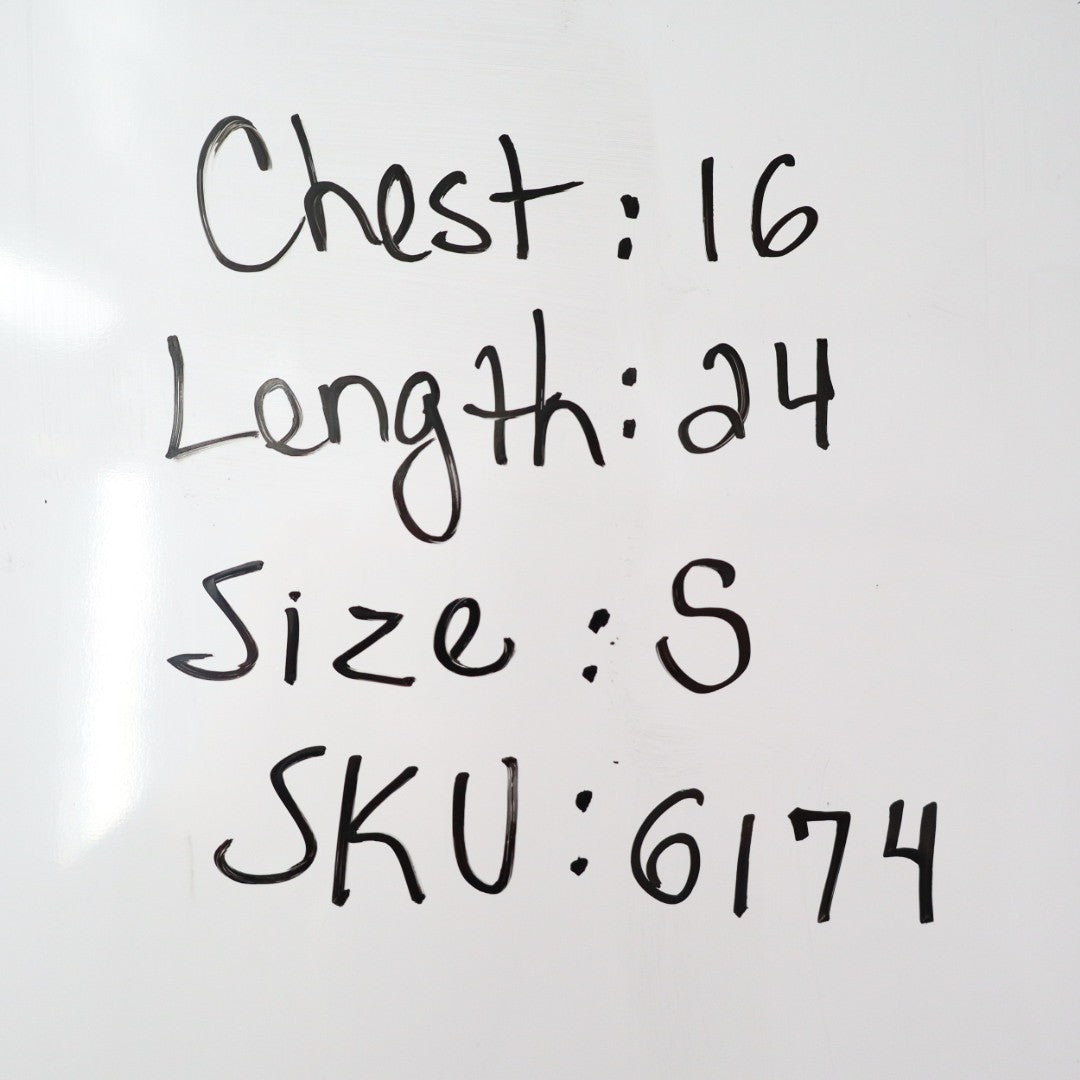 Chest: 16
Length: 24
Size: S
SKU: 6174